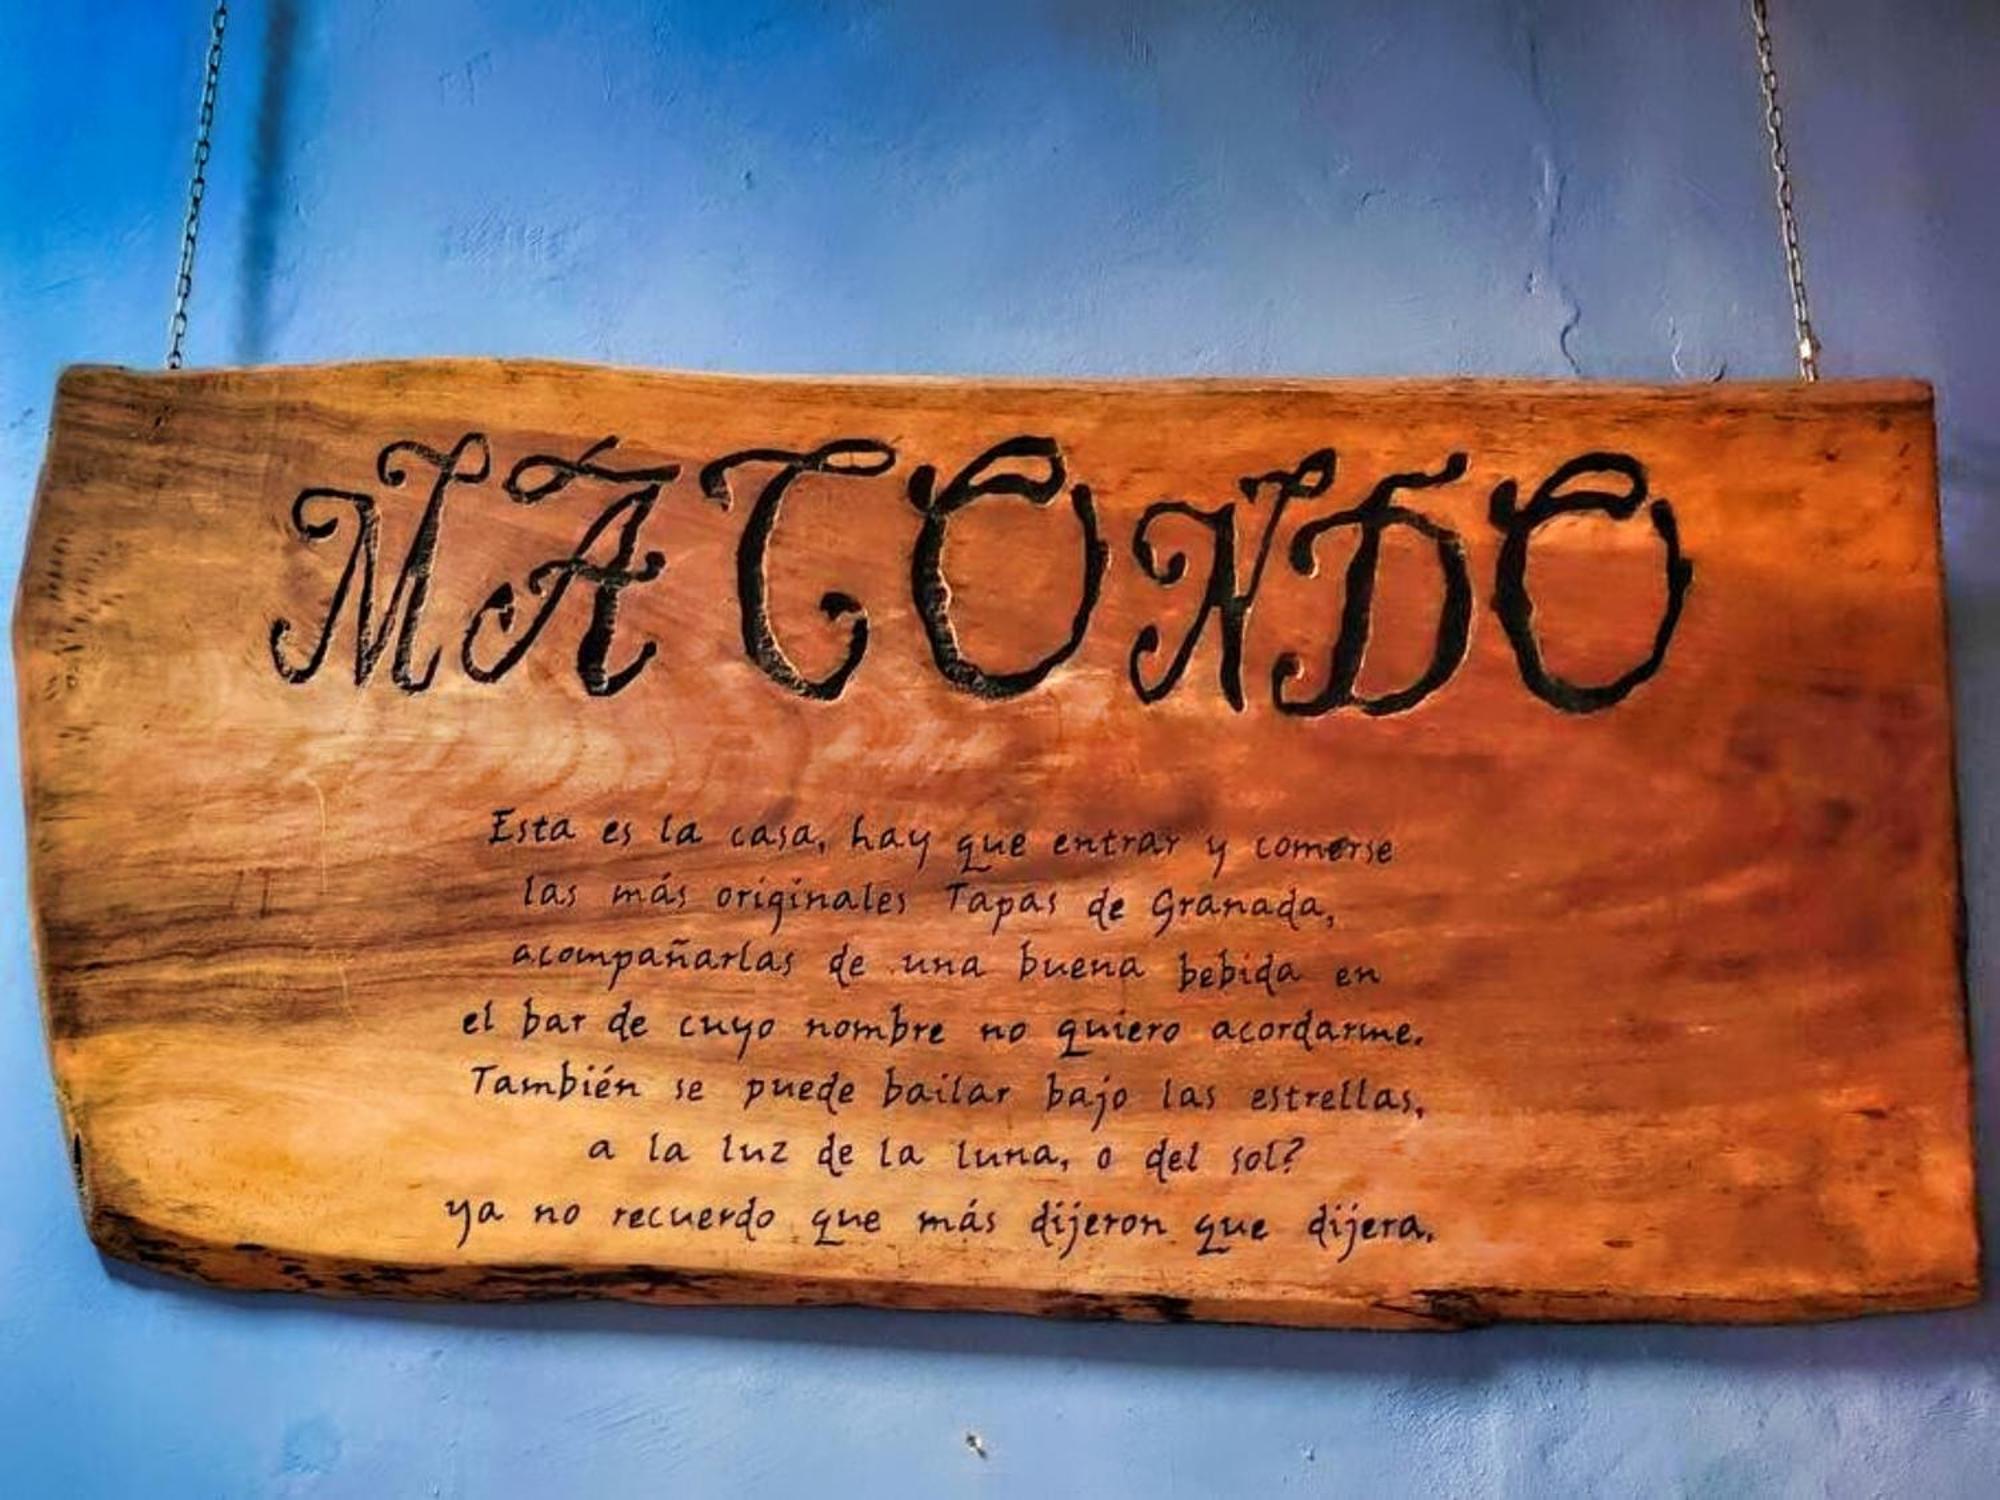 MACONDO
Esta es la casa, hay que entrar y comerse
las más originales Tapas de Granada,
acompañarlas de una buena bebida en
el bar de cuyo nombre no quiero acordarme.
También se puede bailar bajo las estrellas,
a la luz de la luna, o del sol?
ya no recuerdo que más dijeron que dijera.